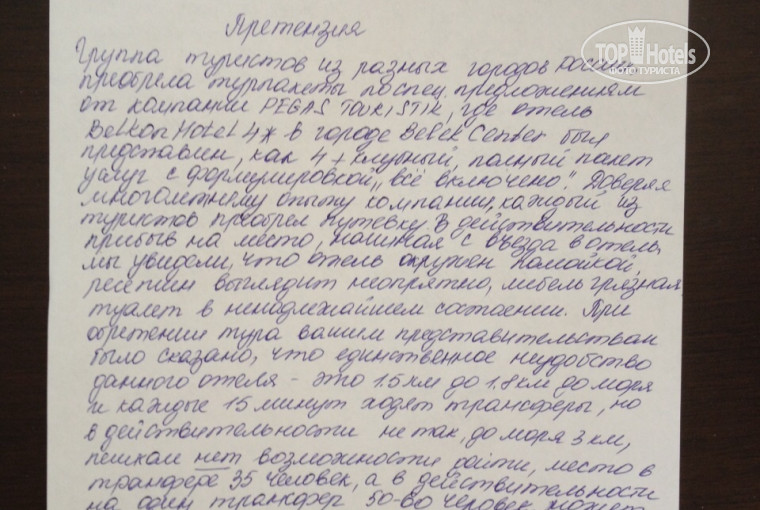 Претензия
TOP Hotels
ФОТО ТУРИСТА
Группа туристов из разных городов России
приобрела турпакеты по спец. предложениям
от компании PEGAS TOURISTIK, где отель
Belkon Hotel 4* в городе Belek Center был
представлен, как 4+ клубный, полный пакет
услуг с формулировкой „всё включено". Доверяя
многолетнему опыту компании, каждый из
туристов преобрел путевку. В действительности
прибыв на место, начиная с въезда в отель,
мы увидели, что отель окружен помойкой,
ресепшн выглядит неопрятно, мебель грязная,
туалет в ненадлежайшем состоении. При
обретении тура вашим представительством
было сказано, что единственное неудобство
данного отеля - это 1.5 км до 1.8 км до моря
и каждые 15 минут ходят трансферы, но
в действительности не так, до моря 3 км,
пешком нет возможности дойти, место в
трансфере 35 человек, а в действительности
на один трансфер 50-60 человек может